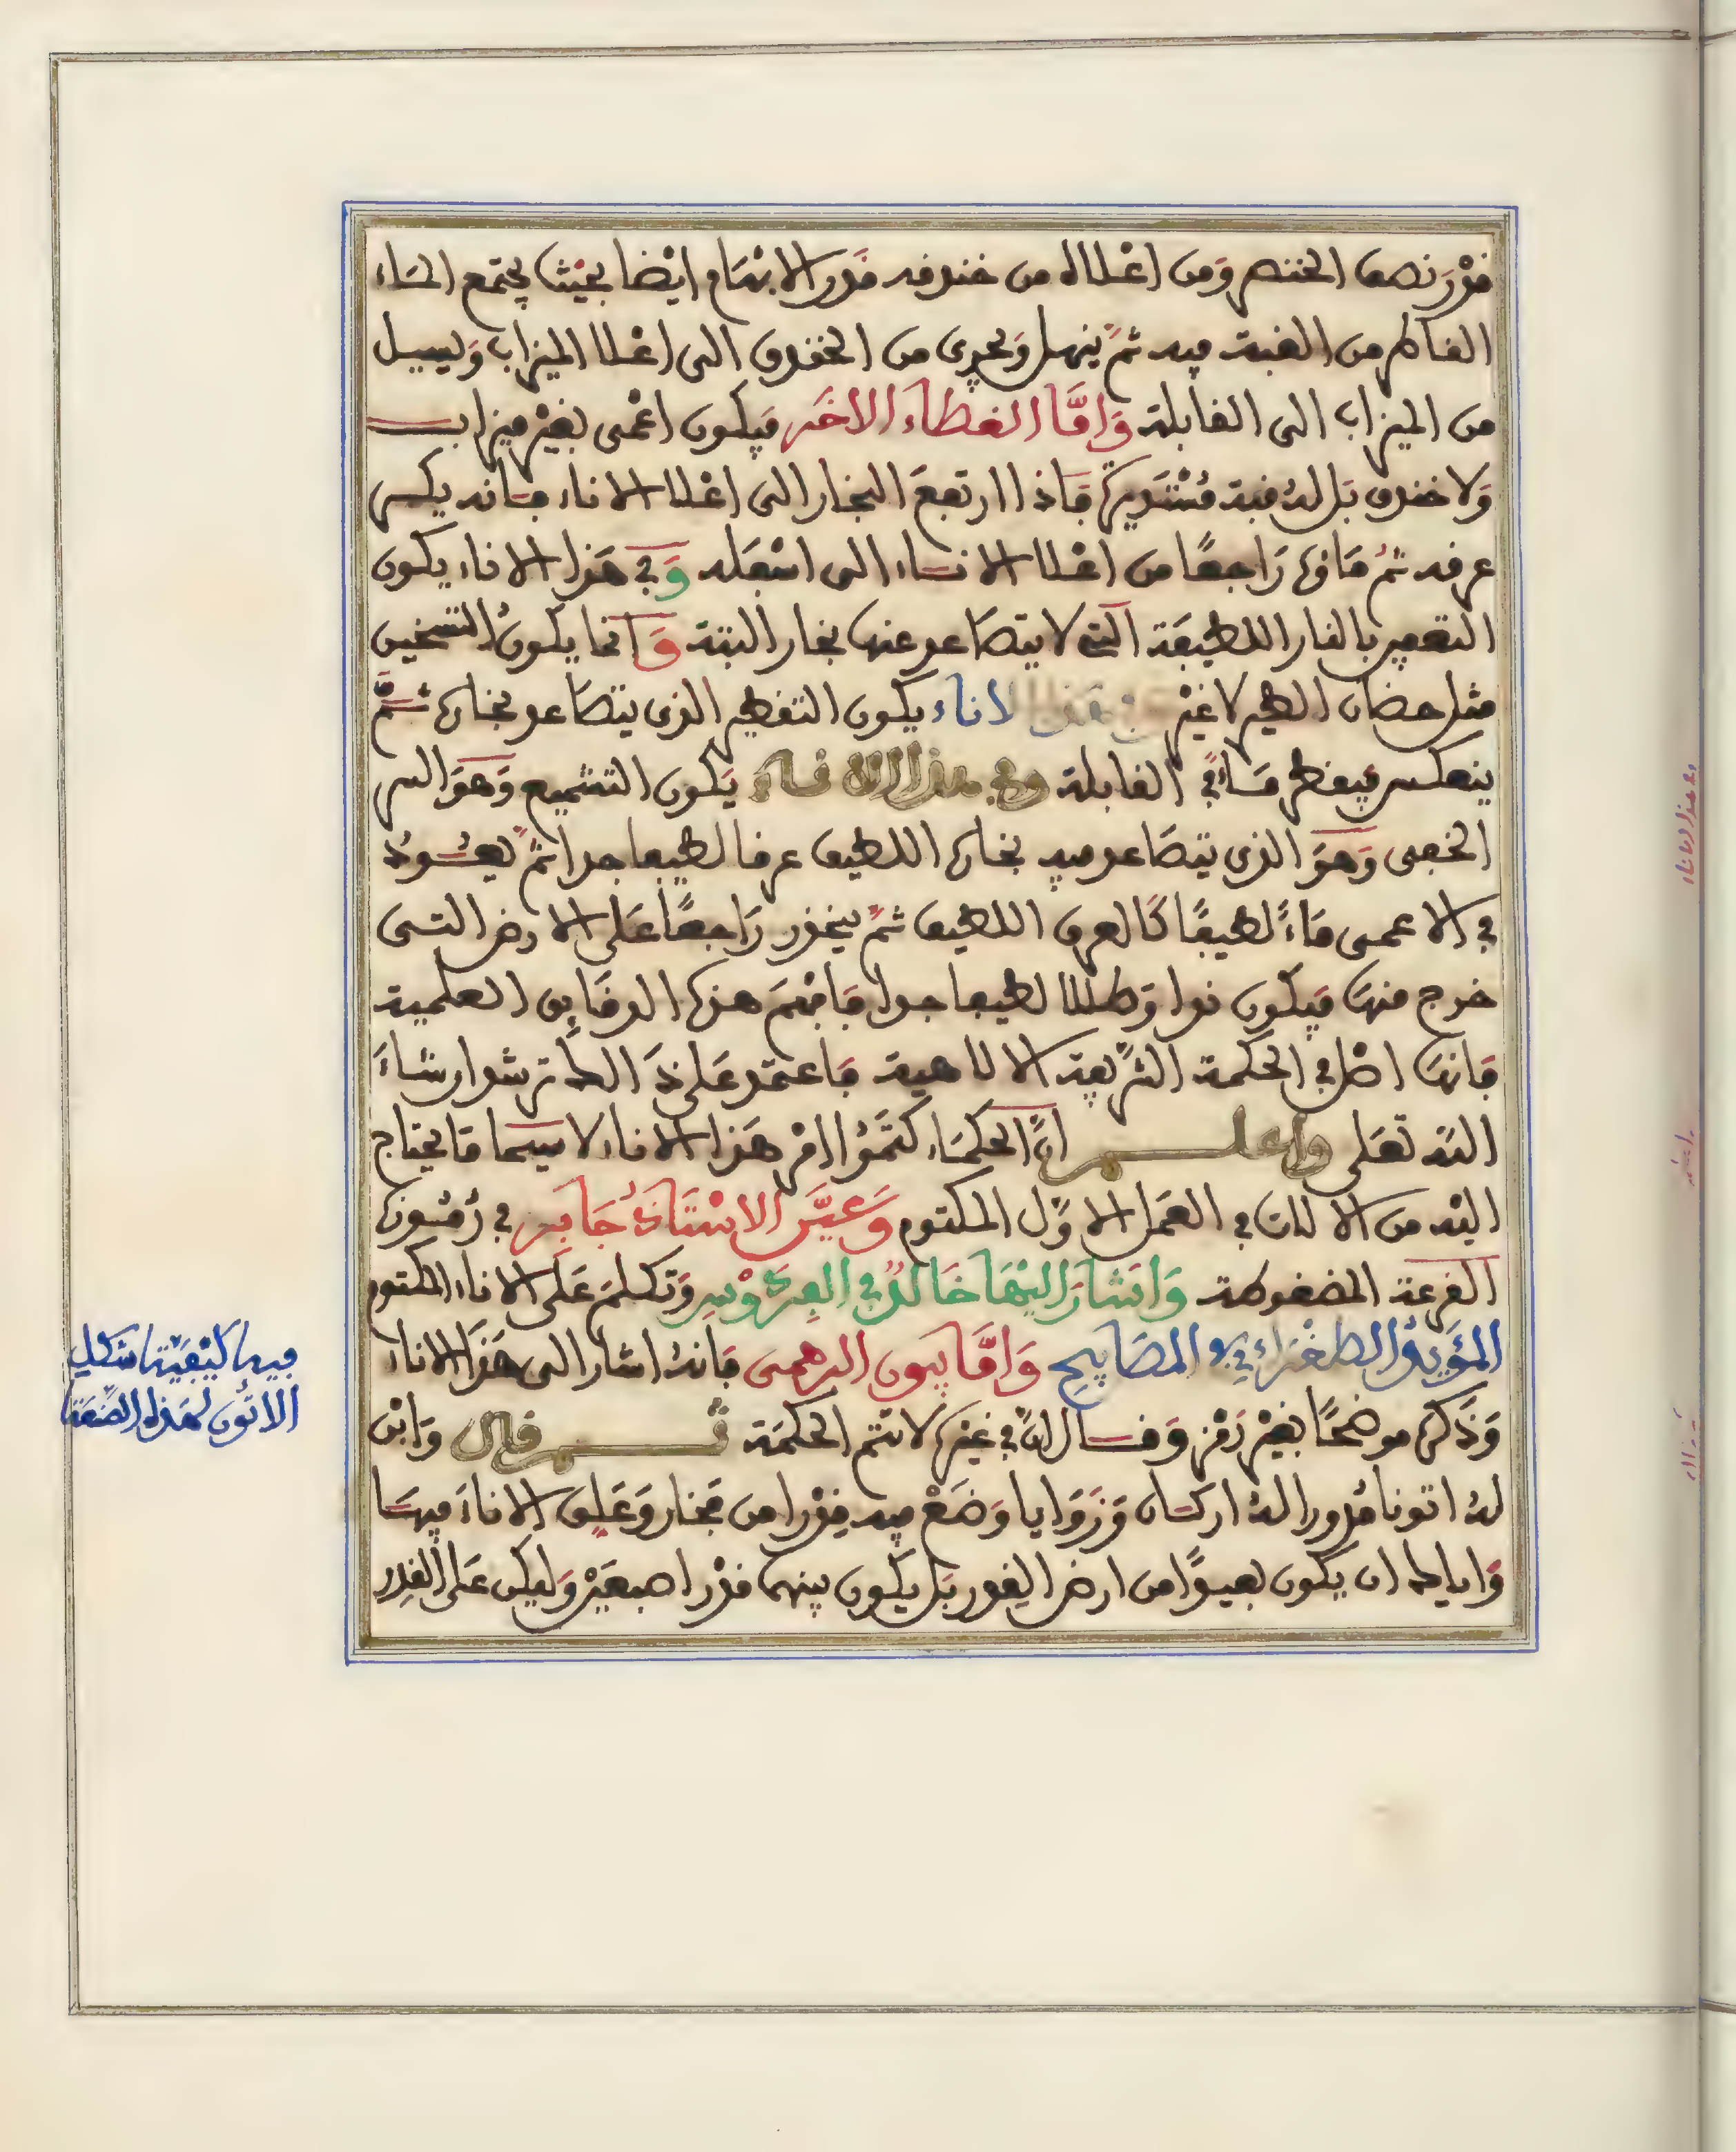 قدْرَ نصف الخنصر وَمن اعْلااه من خندقه قدر الابْهَام ايْضا بحَيْث يجتمع المَاء
القاطر من القبة فيه ثمَّ ينهل وَيجري من الخندق الى اعْلا الميزاب وَيسيل
من الميزاب الى القابلة وَامَّا الغطَاء الاخَر فيَكون اعْمى بغيْر ميزاب
وَلا خندق بَل لهُ قبة مُسْتَديرة فَاذا ارتفعَ البخار الى اعْلا الاناء فَانه يكسر
عرقه ثمَّ مَاؤه رَاجعًا من اعْلا الانَاء الى اسْفَله وَفي هَذا الاناء يكون
التقطير بالنار اللطيفَة التي لا يتصَاعد عنها بخار البتة وَانما يكونُ التسْخين
مثل حضان الطير لا غيْر لاناء يكون التقطير الذي يتصَاعد بخَاره ثمَّ
ينعكس فيقطر مَاءً في القابلة وفي هذا الانَاء يَكون التتميم وَهوَ السر
الخفى وَهوَ الذي يتصَاعد فيه بخَاره اللطيف عرقا لطيفا جدا ثمَّ يعُودُ
في الاعمى مَاءً لطيفًا كَالعرق اللطيف ثمَّ ينحدر رَاجعًا عَلى الارض التى
خرج منهَا فيَكون ندا وَطللا لطيفا جدا فَافْهَم هذه الدقَايق العلمية
فَانهَا اصْل في الحكمة الشَّريفة الالاهية فاعتمد عَلى ذَالك ترشد ان شاءَ
الله تعَلى واعلم انَّ الحكمَاء كتَمُوا امْر هَذا الاناء لا سيَما مَا يحتَاج
اليْه من الالات في العَمل الاوَّل المكتوم وَعيَّر الاسْتَاذُ جَابَر في رُمُوزه
القرعة المضغوطة وَاشَارَ اليْهَا خَالدٌ في الفِرْدَوْس وَتكلمَ عَلى الاناء المكتوم
المُؤَيدُ الطغرَاءِي في المصَابِيح وَامَّا بيون البرهمى فَانهُ اشار الى هَذا الاناء
وَذكَره موضحًا بغيْر رَمْز وَقَال انَّ في غيْره لا تتم الحكمَة ثم قال وَابْن
لهُ اتونا مُدورا لهُ اركَان وَزَوَايا وَضَعْ فيه قِدْرا من فخار وَعَلق الاناءَ فيهَا
وَاياك ان يكون بعيدًا من ارض القدر بَل يكون بينهما قدْر اصبعَيْن وَليكن عَلى القِدر
فيهاكَيْفيَّتها شكل
الاتُون لهذه الصَّنْعَة